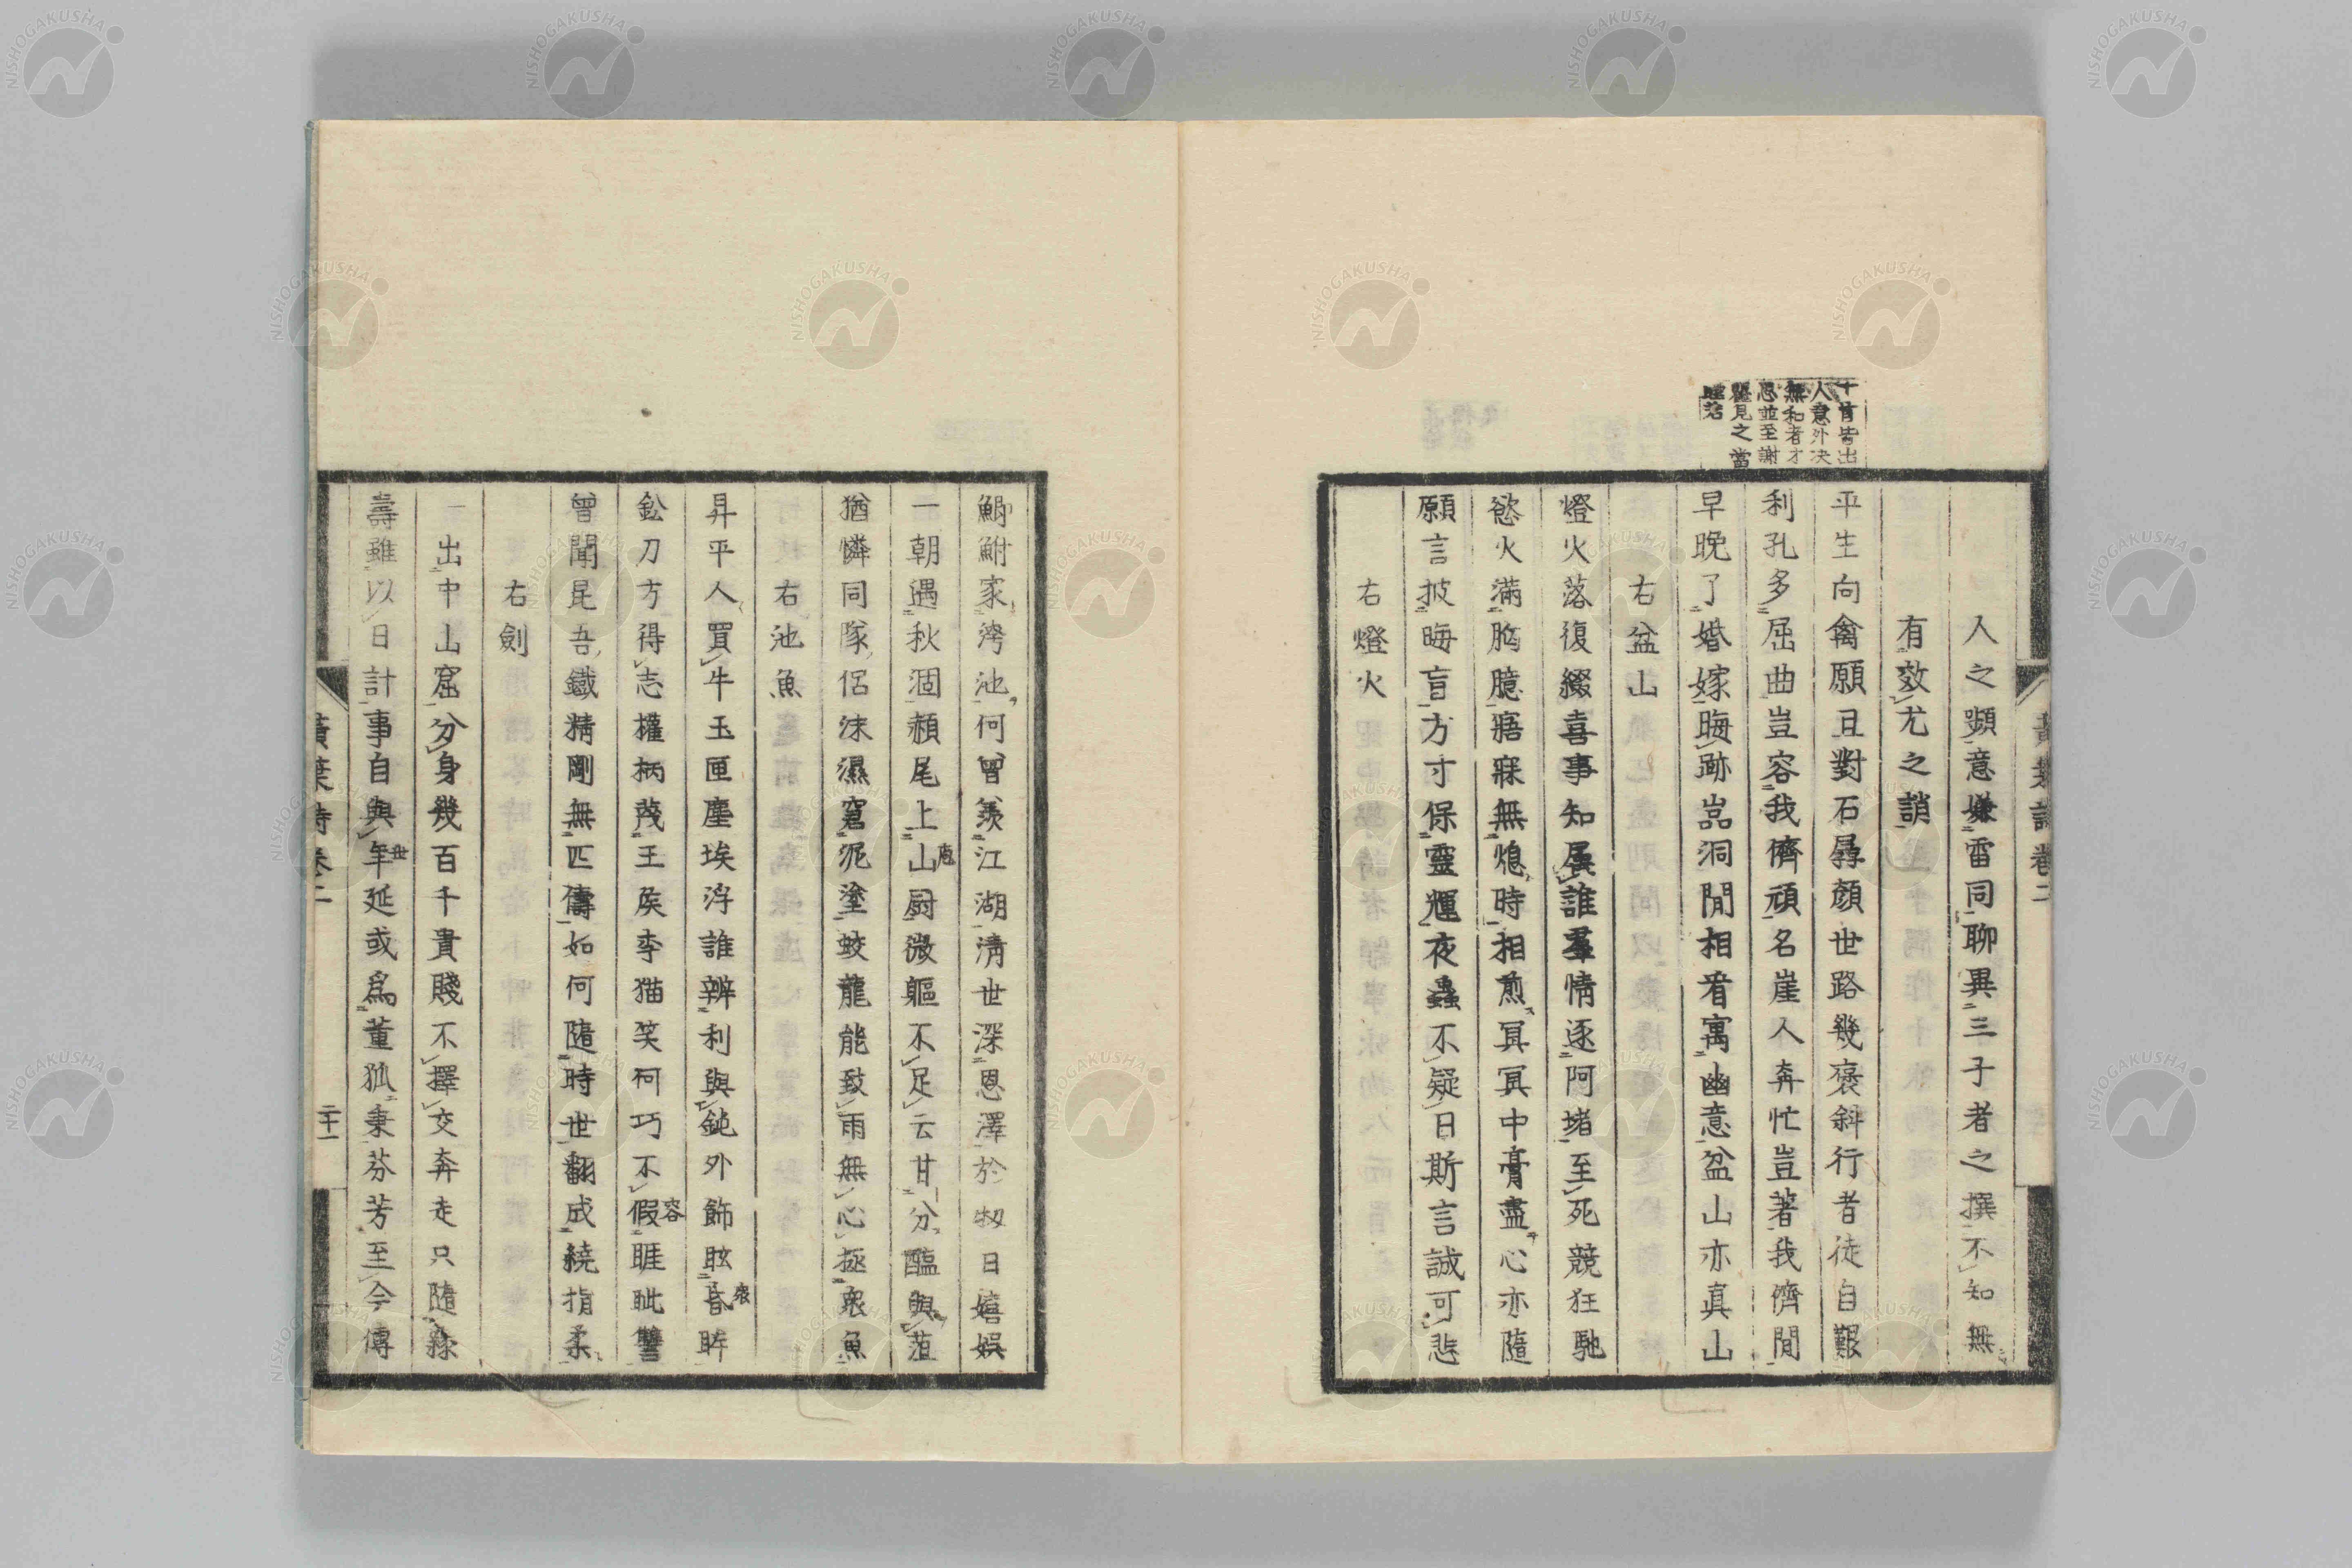 十首皆出
人意外决
無和者才
思並至謝
客見之當
人之顰意嫌雷同聊異三子者之撰不知無
有效尤之誚
平生向禽願且對石孱顔世路幾褒斜行者徒自艱
利孔多屈曲豈容我儕頑名崖人奔忙豈著我儕閒
早晩了婚嫁晦跡嵓洞閒相看寓幽意盆山亦真山
右盆山
燈火落復綴喜事知屬誰羣情逐阿堵至死競狂馳
慾火滿胸臆寤寐無熄時相煎冥冥中膏盡心亦隨
願言披晦盲方寸保靈輝夜蟲不疑日斯言誠可悲
右燈火
鯽鮒家洿池何曾羨江湖淸世深恩澤於牣日嬉娯
一朝遇秋涸頳尾上山庖厨微軀不足云甘分醢與菹
猶憐同隊侶沫濕窘泥塗蛟龍能致雨無心拯衆魚
右池魚
昇平人買牛玉匣塵埃浮誰辨利與鈍外飾眩昏衆眸
鉛刀方得志權柄茂王矦李猫笑何巧不假容睚眦讐
曾聞昆吾鐵精剛無匹儔如何隨時世翻成繞指柔
右劍
一出中山窟分身幾百千貴賤不擇交奔走只隨緣
壽雖以日計事自與年世延或爲董狐秉芬芳至今傳
黃葉詩卷二
二十一